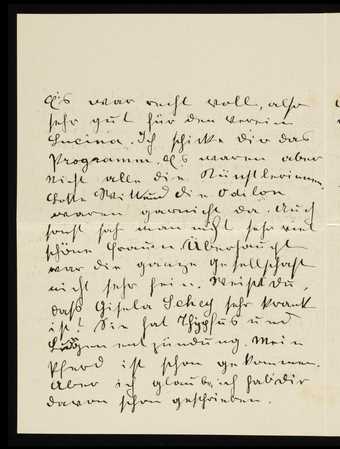 Es war recht voll, also
sehr gut für den Verein
Lucina. Ich schicke dir das
Programm. Es waren aber
nicht alle die Künstlerinnen.
Lotte Witt und die Odilon
waren garnicht da. Auch
sonst sah man nicht sehr viel
schöne Frauen. Überhaupt
war die ganze Gesellschaft
nicht sehr fein. Weist du,
dass Gisela sehr krank
ist? Sie hat Thyphus und
Lungenentzündung. Mein
Pferd ist schon gekommen.
Aber ich glaube, ich hab dir
davon schon geschrieben.